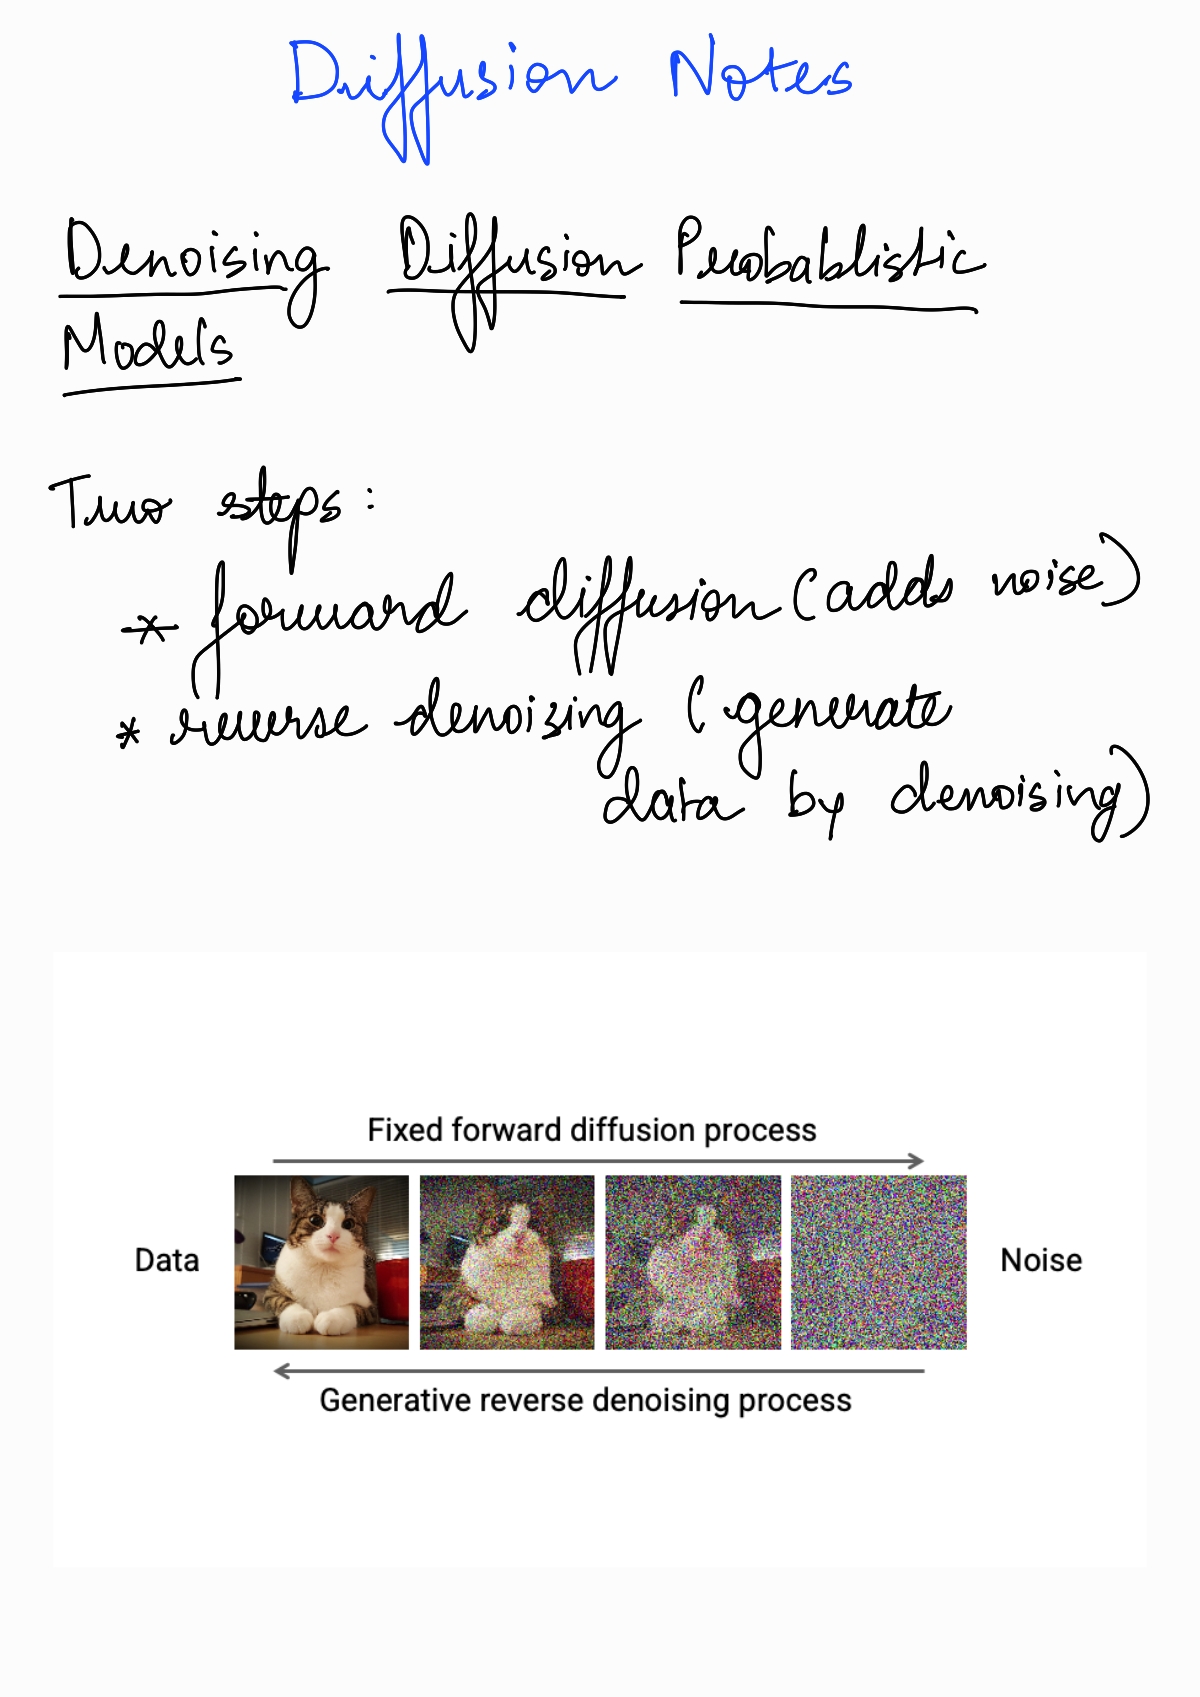 Diffusion Notes
Denoising Diffusion Probablistic
Models
Two steps:
* forward diffusion (adds noise)
* reverse denoizing (generate
data by denoising)
Fixed forward diffusion process
Data
Noise
Generative reverse denoising process